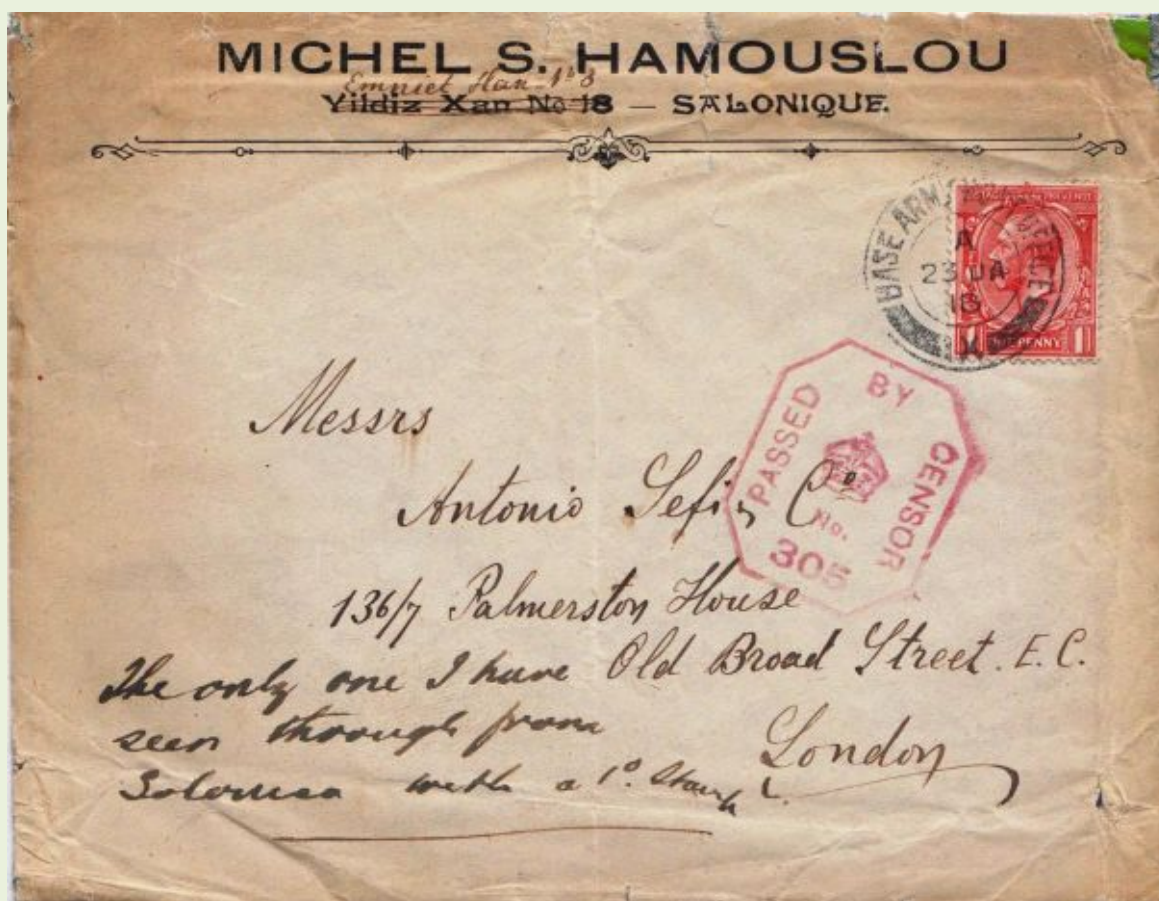 MICHEL S. HAMOUSLOU
Emniet Han No 3
Yildiz Xan No 18 — SALONIQUE.
BASE ARMY
A
23 JA
18
X
ONE PENNY
PASSED BY CENSOR
No.
305
Messrs
Antonio Sefi & Co
136/7 Palmerston House
Old Broad Street. E.C.
London
The only one I have
seen through from
Salonica with a 1d. Stamp